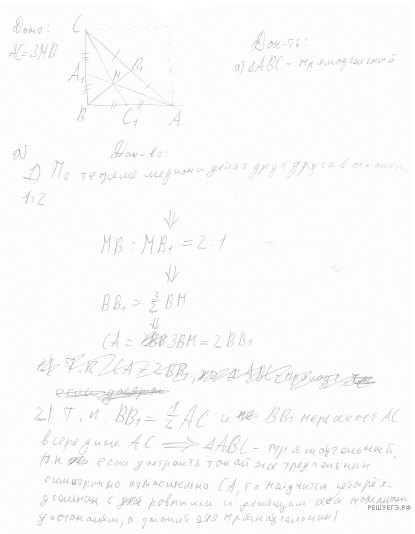 Дано:
AC=3MB
C
A₁
B₁
M
B
C₁
A
Док-ть:
а) △ABC - прямоугольный
а) Док-во:
1) По теореме медианы делят друг друга в отношении
1:2
⇓
MB : MB₁ = 2:1
⇓
BB₁ = 3/2 BM
⇓
CA = 3BM = 2BB₁
2) Т.к. BB₁ = 1/2 AC и BB₁ пересекает AC
в середине AC ⟹ △ABC - прямоугольный.
т.к. если достроить такой же треугольник
симметрично относительно CA, то получится четырёх-
угольник с равными и делящими себя пополам
диагоналями, а такой это прямоугольник!
РЕШУЕГЭ.РФ